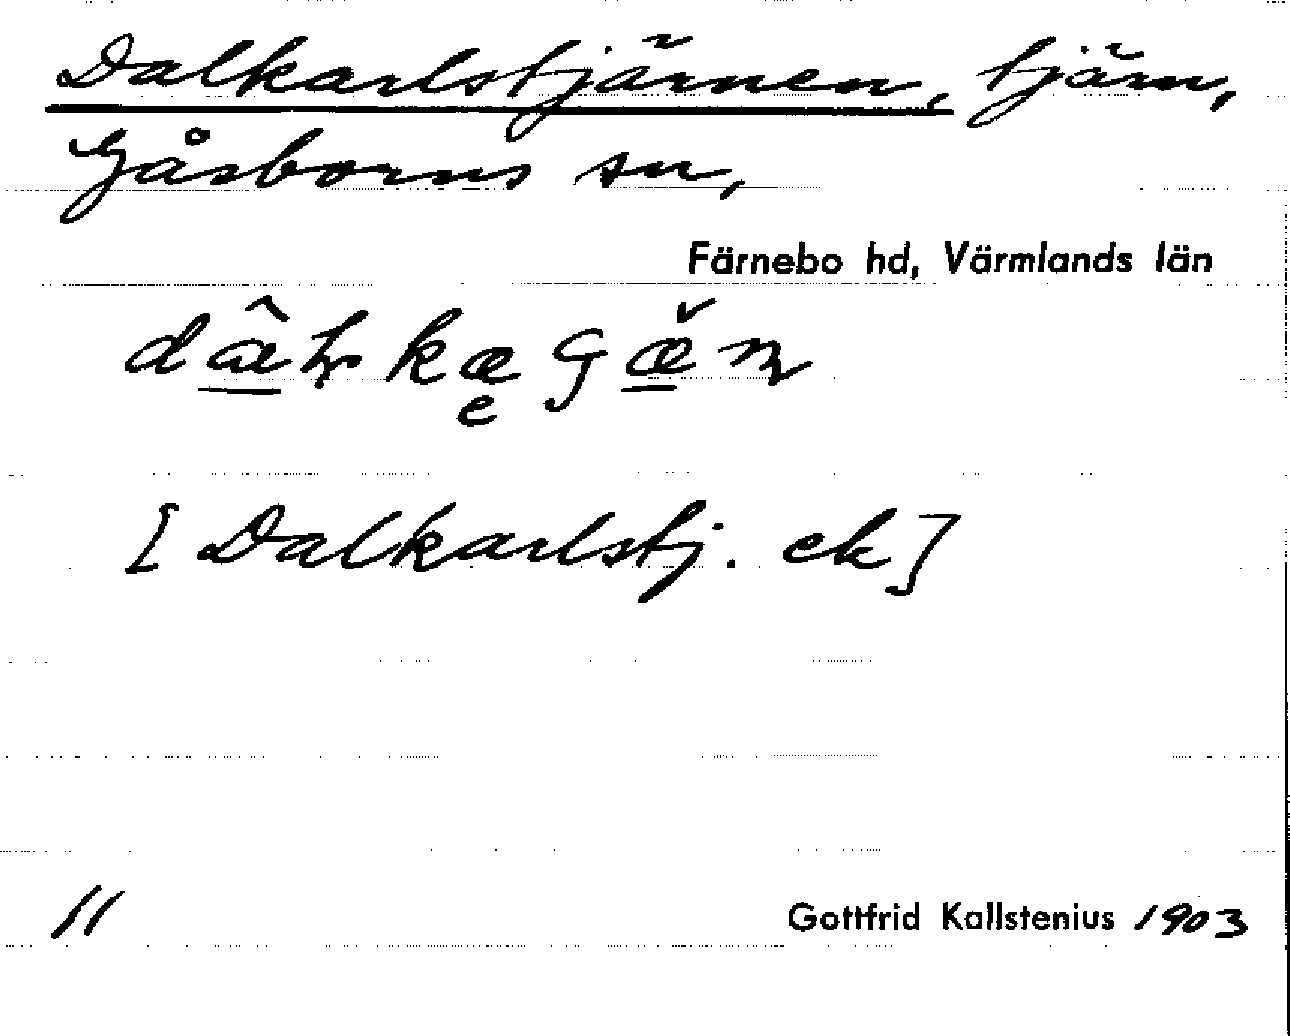 Dalkarlstjärnen, tjärn,
Gåsborns sn,
Färnebo hd, Värmlands län
[Dalkarlstj. ek]
11
Gottfrid Kallstenius 1903